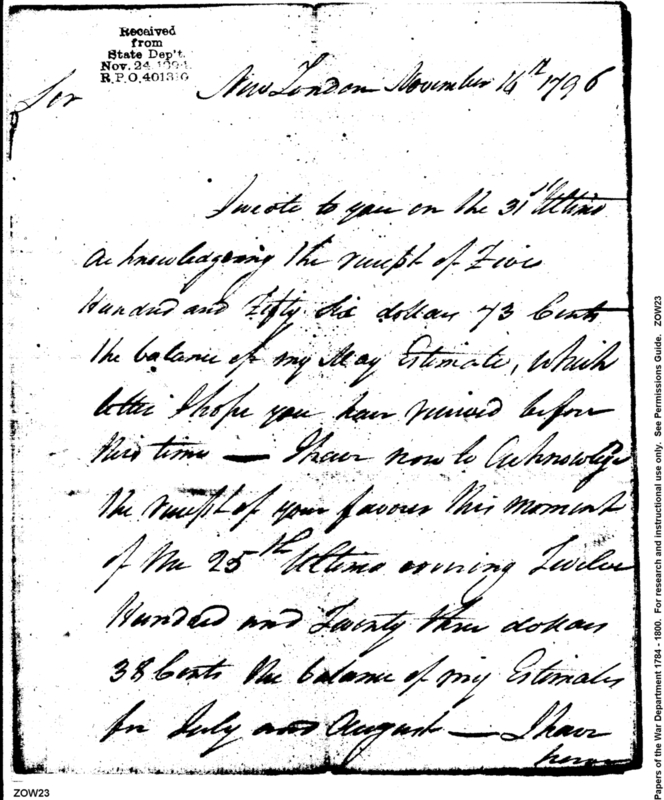 Received
from
State Dep't.
Nov. 24 1894
R.P.O. 401310
Sir
New London November 14th 1796
I wrote to you on the 31st Ultimo
acknowledging the receipt of Five
Hundred and Fifty Six dollars 73 Cents
the balance of my May Estimate, which
letter I hope you have received before
this time — I have now to Acknowledge
the receipt of your favour this moment
of the 25th Ultimo covering Twelve
Hundred and Twenty three dollars
38 Cents the balance of my Estimates
for July and August — I have
ZOW23
Papers of the War Department 1784 - 1800. For research and instructional use only. See Permissions Guide. ZOW23